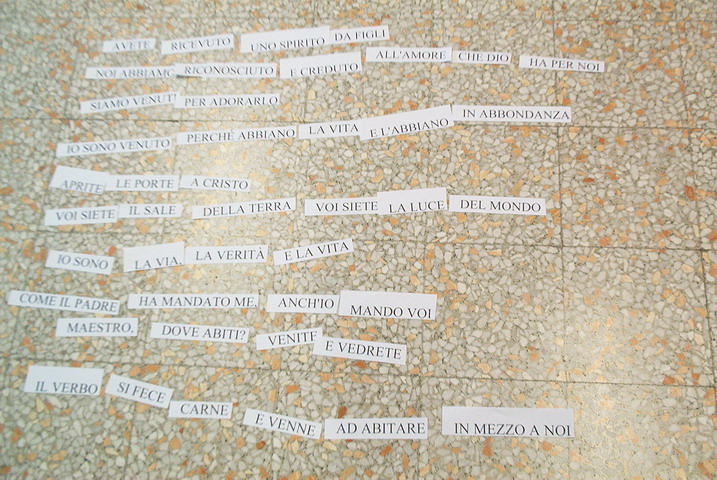 AVETE RICEVUTO UNO SPIRITO DA FIGLI
NOI ABBIAMO RICONOSCIUTO E CREDUTO ALL'AMORE CHE DIO HA PER NOI
SIAMO VENUTI PER ADORARLO
IO SONO VENUTO PERCHÉ ABBIANO LA VITA E L'ABBIANO IN ABBONDANZA
APRITE LE PORTE A CRISTO
VOI SIETE IL SALE DELLA TERRA VOI SIETE LA LUCE DEL MONDO
IO SONO LA VIA, LA VERITÀ E LA VITA
COME IL PADRE HA MANDATO ME, ANCH'IO MANDO VOI
MAESTRO, DOVE ABITI? VENITE E VEDRETE
IL VERBO SI FECE CARNE E VENNE AD ABITARE IN MEZZO A NOI